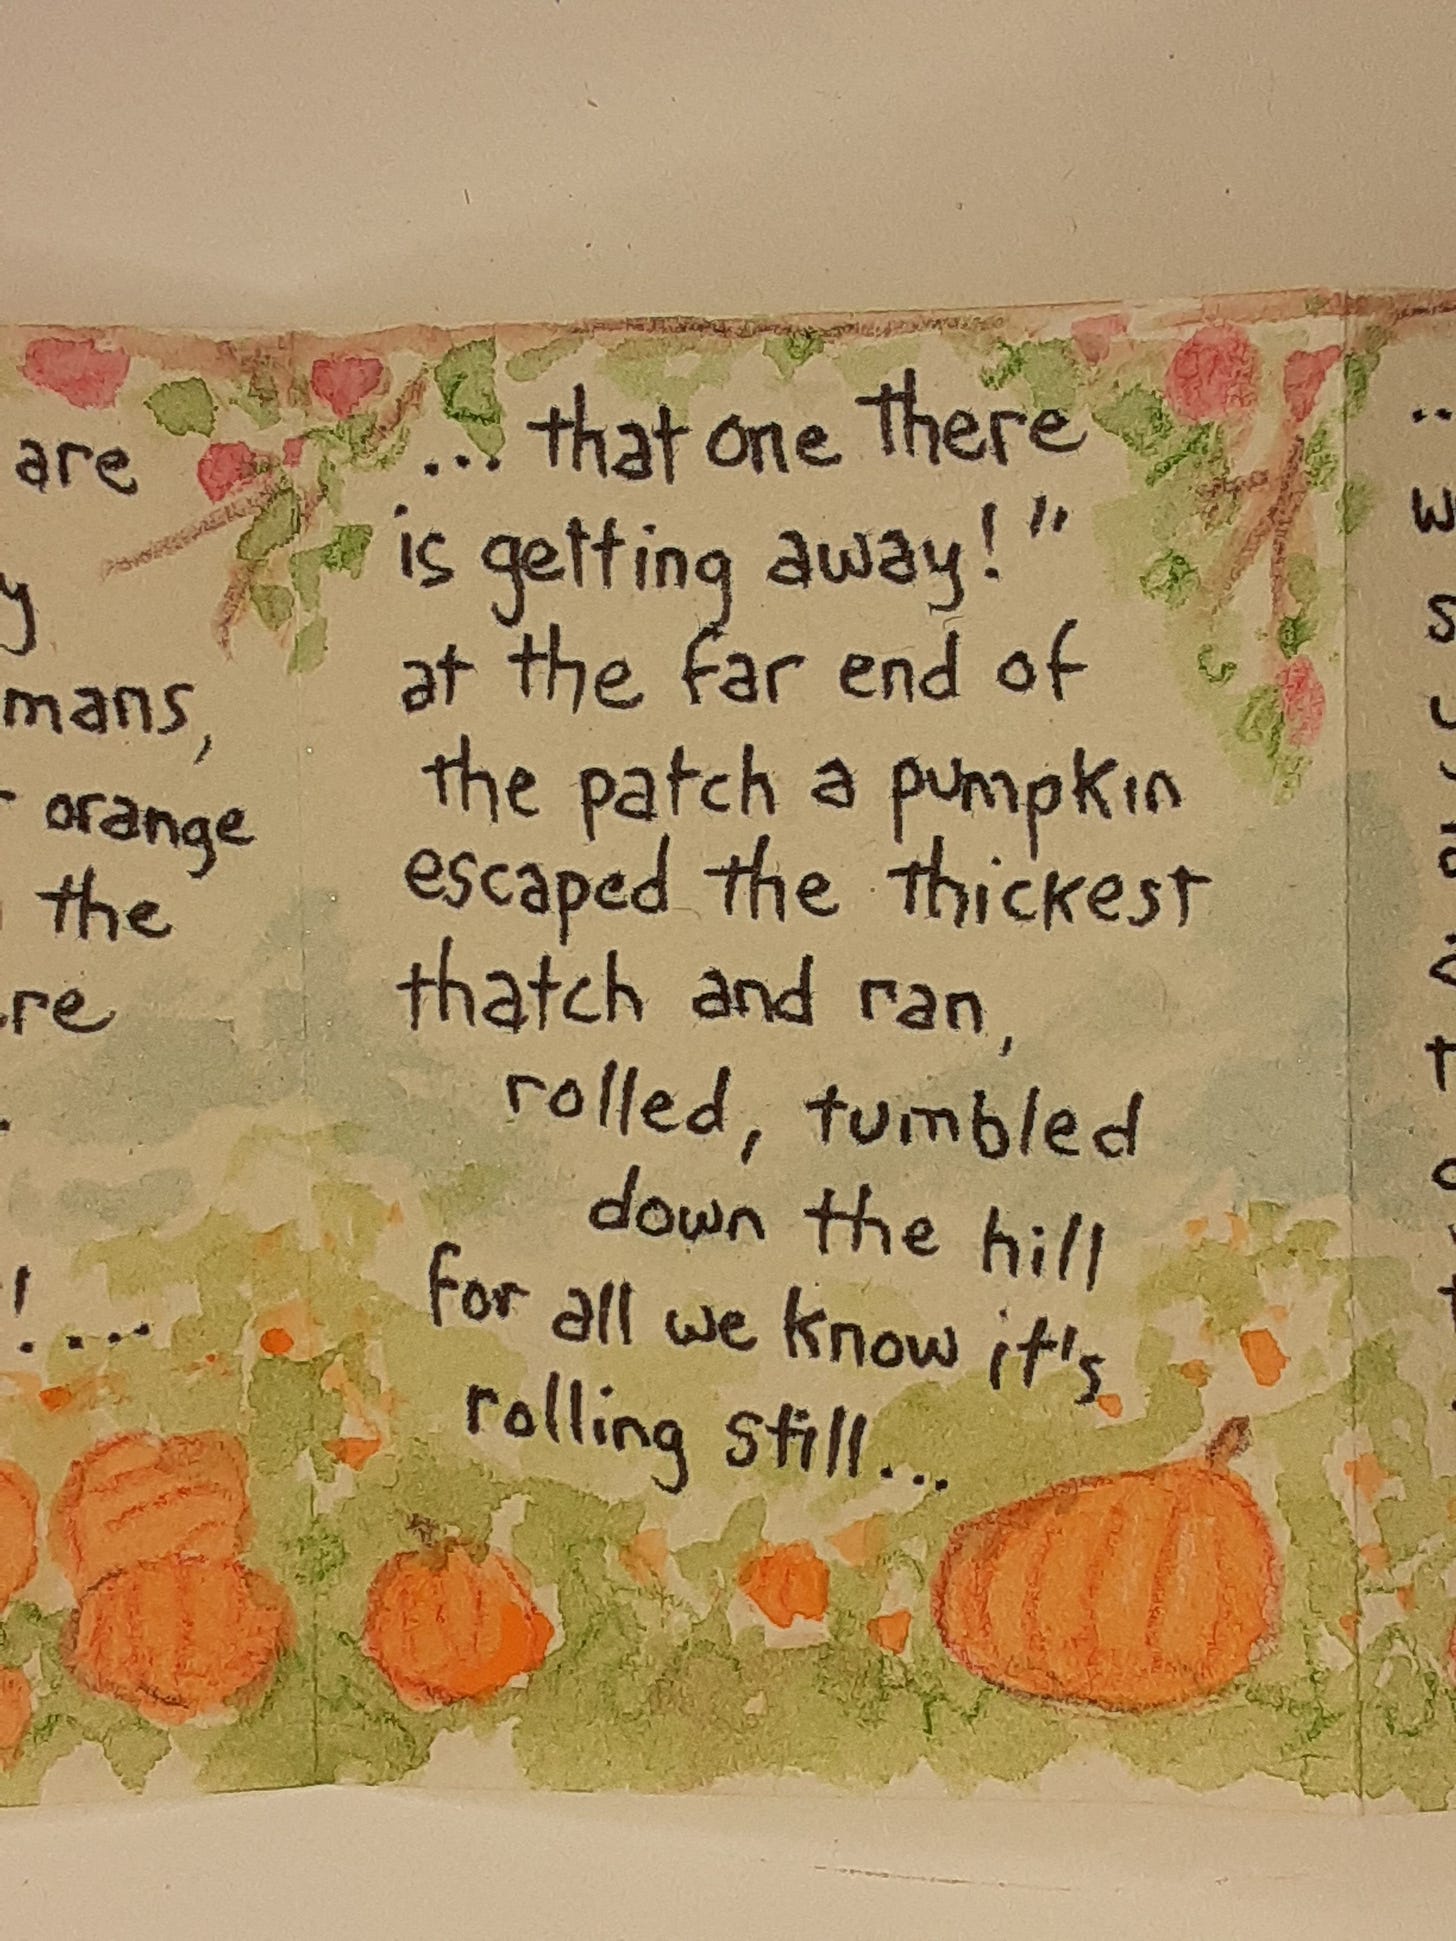 are
y
mans,
orange
the
re
!....
... that one there
is getting away!"
at the far end of
the patch a pumpkin
escaped the thickest
thatch and ran,
rolled, tumbled
down the hill
for all we know it's
rolling still...